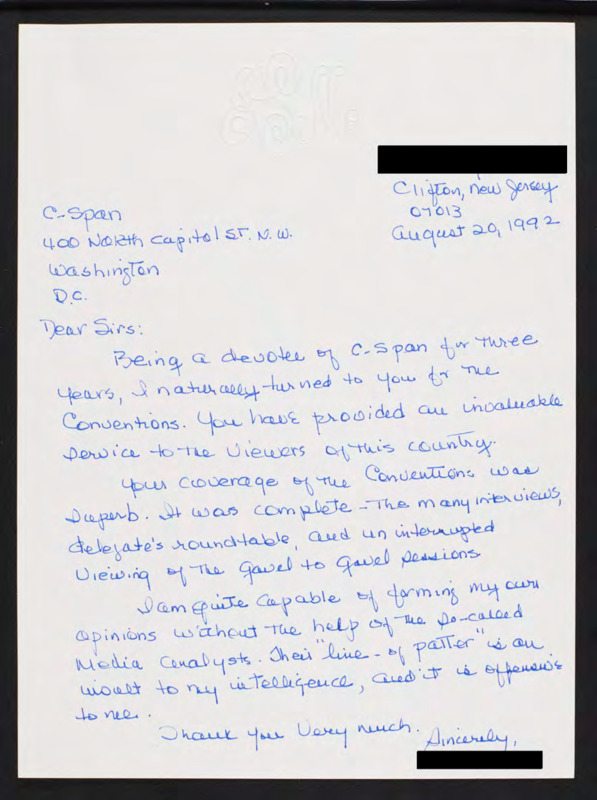 Clifton, New Jersey
07013
August 20, 1992
C-Span
400 North Capitol St. N.W.
Washington
D.C.
Dear Sirs:
Being a devotee of C-Span for three
years, I naturally turned to you for the
Conventions. You have provided an invaluable
service to the viewers of this country.
Your coverage of the Conventions was
superb. It was complete - The many interviews,
delegate's roundtable, and un interrupted
viewing of the Gavel to Gavel sessions
I am quite capable of forming my own
opinions without the help of the so-called
Media analysts. Their "line-of patter" is an
insult to my intelligence, and it is offensive
to me.
Thank you very much.
Sincerely,